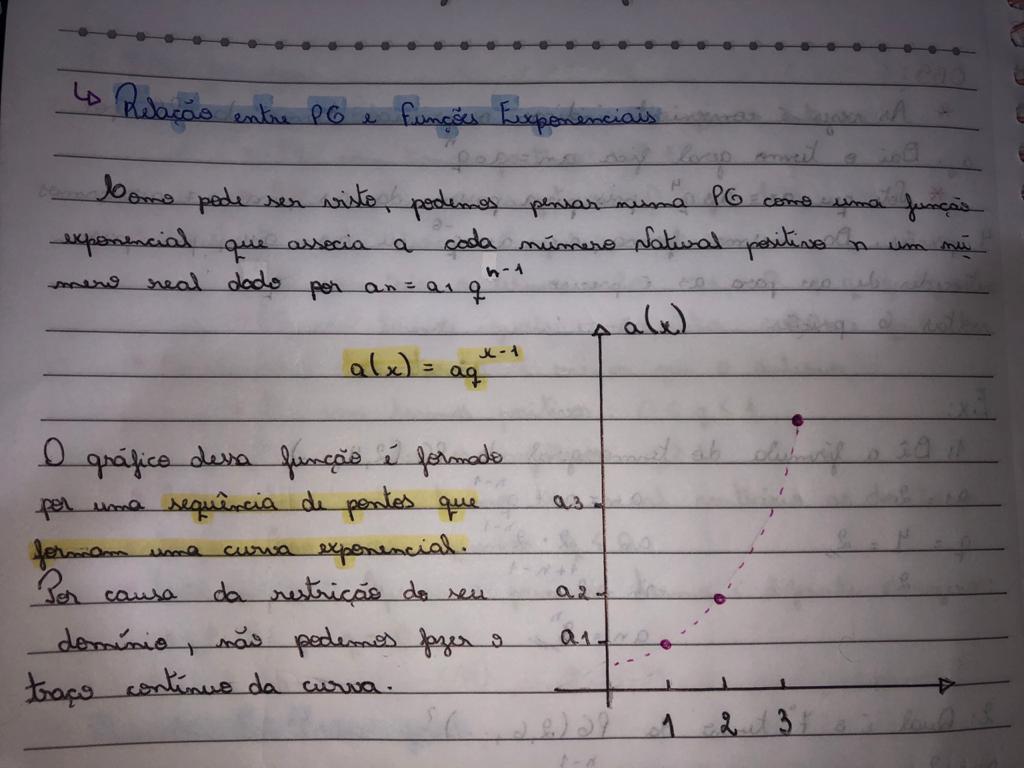 ↳ Relação entre PG e Funções Exponenciais
Como pode ser visto, podemos pensar numa PG como uma função
exponencial que associa a cada número Natural positivo n um nú
mero real dado por an = a1 q^n-1
a(x)
a(x) = aq^x-1
O gráfico dessa função é formado
por uma sequência de pontos que
formam uma curva exponencial.
Por causa da restrição do seu
domínio, não podemos fazer o
traço contínuo da curva.
a3
a2
a1
1 2 3